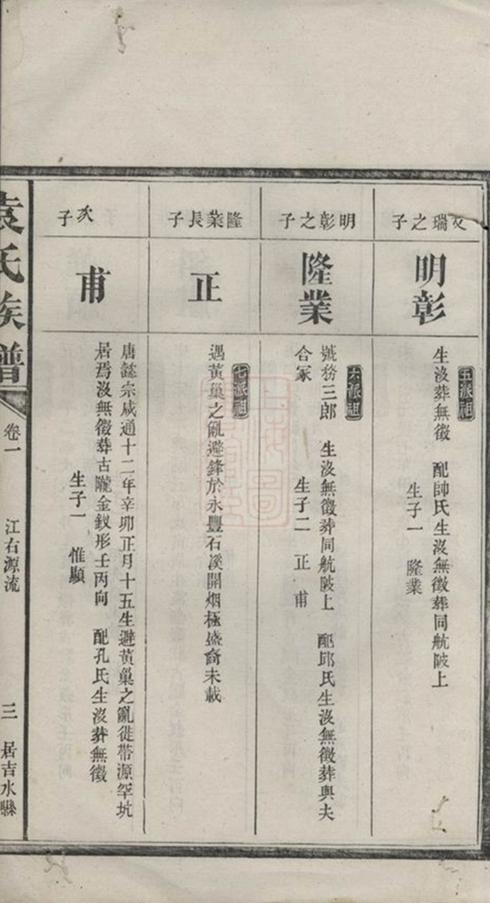 文瑞之子
明彰
五派祖
生沒葬無徵　配帥氏生沒無徵葬同航陂上
生子一　隆業
明彰之子
隆業
六派祖
號務三郎　生沒無徵葬同航陂上　配邱氏生沒無徵葬與夫
合冢
生子二　正　甫
隆業長子
正
七派祖
遇黃巢之亂避鋒於永豐石溪開烟極盛裔未載
次子
甫
唐懿宗咸通十二年辛卯正月十五生避黃巢之亂徙帶源罕坑
居焉沒無徵葬古隴金釵形壬丙向　配孔氏生沒葬無徵
生子一　惟顯
袁氏族譜
卷一
江右源流
三
居吉水縣